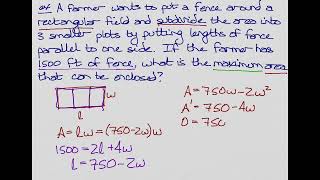 ex A farmer wants to put a fence around a
rectangular field and subdivide the area into
3 smaller plots by putting lengths of fence
parallel to one side. If the farmer has
1500 ft of fence, what is the maximum area
that can be enclosed?
w
l
A = lw = (750-2w)w
1500 = 2l + 4w
l = 750 - 2w
A = 750w - 2w²
A' = 750 - 4w
0 = 750